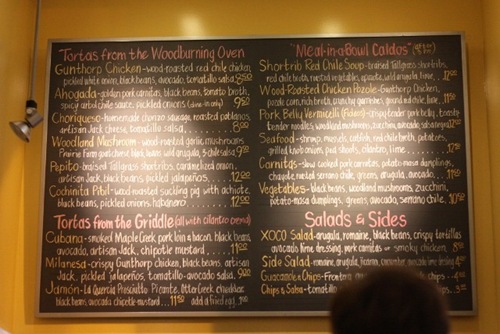 Tortas from the Woodburning Oven
Gunthorp Chicken-wood-roasted red chile chicken,
pickled white onion, black beans, avocado, tomatillo salsa
Ahogada-golden pork carnitas, black beans, tomato broth,
spicy arbol chile sauce, pickled onions (dine-in only) 9.50
Choriqueso-homemade chorizo sausage, roasted poblanos,
artisan Jack cheese, tomatillo salsa
Woodland Mushroom-wood-roasted garlic mushrooms
Prairie Farm goat cheese, black beans, wild arugula, salsa
Pepito-braised Tallgrass shortribs, caramelized onion,
artisan Jack, black beans, pickled jalapeños 12.00
Cochinita Pibil-wood roasted suckling pig with achiote,
black beans, pickled onions, habanero
Tortas from the Griddle (all with cilantro crema)
Cubana-smoked Maple Creek pork loin & bacon, black beans,
avocado, artisan Jack, chipotle mustard 11.00
Milanesa-crispy Gunthorp chicken, black beans, artisan
Jack, pickled jalapeños, tomatillo-avocado salsa
Jamón-La Quercia Prosciutto Picante, Otter Creek cheddar,
black beans, avocado, chipotle mustard 11.50 add a fried egg
"Meal-in-a-Bowl Caldos"
Shortrib Red Chile Soup-braised Tallgrass shortribs,
red chile broth, roasted vegetables, wild arugula, lime 12.00
Wood-Roasted Chicken Pozole-Gunthorp Chicken,
pozole corn, rich broth, crunchy garnishes, ground red chile, lime
Pork Belly Vermicelli (Fideos)-crispy tender pork belly,
noodles, woodland mushrooms, avocado, salsa negra 12.00
Seafood-shrimp, mussels, catfish, red chile broth, potatoes,
grilled knob onion, cilantro, lime 12
Carnitas-slow cooked pork carnitas, potato-masa dumplings,
chayote, roasted serrano chile, greens, arugula, avocado
Vegetables-black beans, woodland mushrooms, zucchini,
potato-masa dumplings, greens, avocado, serrano chile
Salads & Sides
XOCO Salad-arugula, romaine, black beans, crispy tortillas
avocado lime dressing, pork carnitas or smoky chicken
Side Salad-romaine, arugula, avocado-lime dressing
Guacamole & Chips
Chips & Salsa-tomatillo